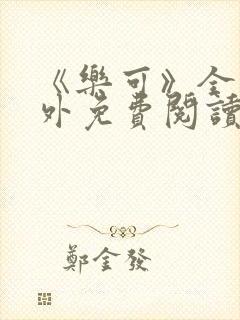 《樂可》全
外免費閱讀
鄭金發